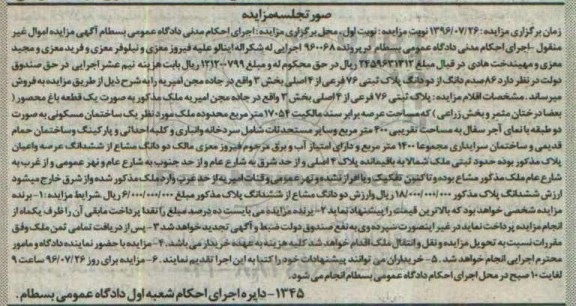 صورتجلسه مزایده
زمان برگزاری مزایده: ۱۳۹۶/۰۷/۲۶ نوبت مزایده: نوبت اول، محل برگزاری مزایده: اجرای احکام مدنی دادگاه عمومی بسطام آگهی مزایده اموال غیر
منقول - اجرای احکام مدنی دادگاه عمومی بسطام در پرونده ۹۶۰۰۶۸ اجرایی له شکراله اینالو علیه فیروز معزی و نیلوفر معزی و فرید معزی و مجید
معزی و مهیندخت هادی در قبال مبلغ ۲۴۵۹۶۳۱۳۱۲ ریال در حق محکوم له و مبلغ ۱۲۱۲۰۷۹۹ ریال بابت هزینه نیم عشر اجرایی در حق صندوق
دولت در نظر دارد ۸۶ صدم دانگ از دو دانگ پلاک ثبتی ۷۶ فرعی از ۴ اصلی بخش ۳ واقع در جاده مجن امیریه را به شرح ذیل از طریق مزایده به فروش
میرساند. مشخصات اقلام مزایده: پلاک ثبتی ۷۶ فرعی از ۴ اصلی بخش ۳ واقع در جاده مجن امیریه ملک مذکور به صورت یک قطعه باغ محصور (
بعضا درختان مثمر و بخش زراعی) که مساحت عرصه برابر سند مالکیت ۱۷۰۵۴ متر مربع محدوده ملک مورد نظر یک ساختمان مسکونی به صورت
دو طبقه با نمای آجر سفال به مساحت تقریبی ۴۰۰ متر مربع و سایر مستحدثات شامل سردخانه و انباری و کلبه احداثی و پارکینگ و ساختمان حمام
قدیمی و ساختمان سرایداری مجموعا ۱۴۰۰ متر مربع و دارای امتیاز آب و برق مرحوم فیروز معزی مالک دو دانگ مشاع از ششدانگ عرصه واعیان
پلاک مذکور بوده حدود ثبتی ملک شمالا به باقیمانده پلاک ۴ اصلی و از حد شرق به شارع عام و از حد جنوب به شارع عام و نهر عمومی و از غرب به
شارع عام ملک مذکور مشاع بوده و تا کنون تفکیک و یا افراز نشده و نهر عمومی و قنات امیریه از حد غرب وارد ملک مذکور شده و از شرق خارج میشود
ارزش ششدانگ پلاک مذکور ۱۸/۰۰۰/۰۰۰/۰۰۰ ریال وارزش دو دانگ مشاع از ششدانگ پلاک مذکور مبلغ ۶/۰۰۰/۰۰۰/۰۰۰ ریال شرایط مزایده: ۱- برنده
مزایده شخصی خواهد بود که بالاترین قیمت را پیشنهاد نماید ۲- برنده مزایده می بایست ده درصد مبلغ را نقدا پرداخت مابقی آن را ظرف یکماه از
انجام مزایده پرداخت نماید در غیر اینصورت سپرده وی به نفع صندوق دولت ضبط و آگهی تجدید خواهد شد ۳- پس از دریافت تمامی ثمن ملک وفق
مقررات نسبت به تحویل مزایده و نقل و انتقال ملک اقدام خواهد شد کلیه هزینه به عهده خریدار می باشد. ۴- مزایده با حضور نماینده دادگاه و مامور
محترم اجرایی انجام خواهد شد. ۵- خریداران می توانند پیشنهادات خود را کتبا به این اجرا تقدیم نمایند. ۶- مزایده برای روز ۹۶/۰۷/۲۶ ساعت ۹
لغایت ۱۰ صبح در محل اجرای احکام دادگاه عمومی بسطام انجام می شود.
۱۳۴۵- دایره اجرای احکام شعبه اول دادگاه عمومی بسطام.